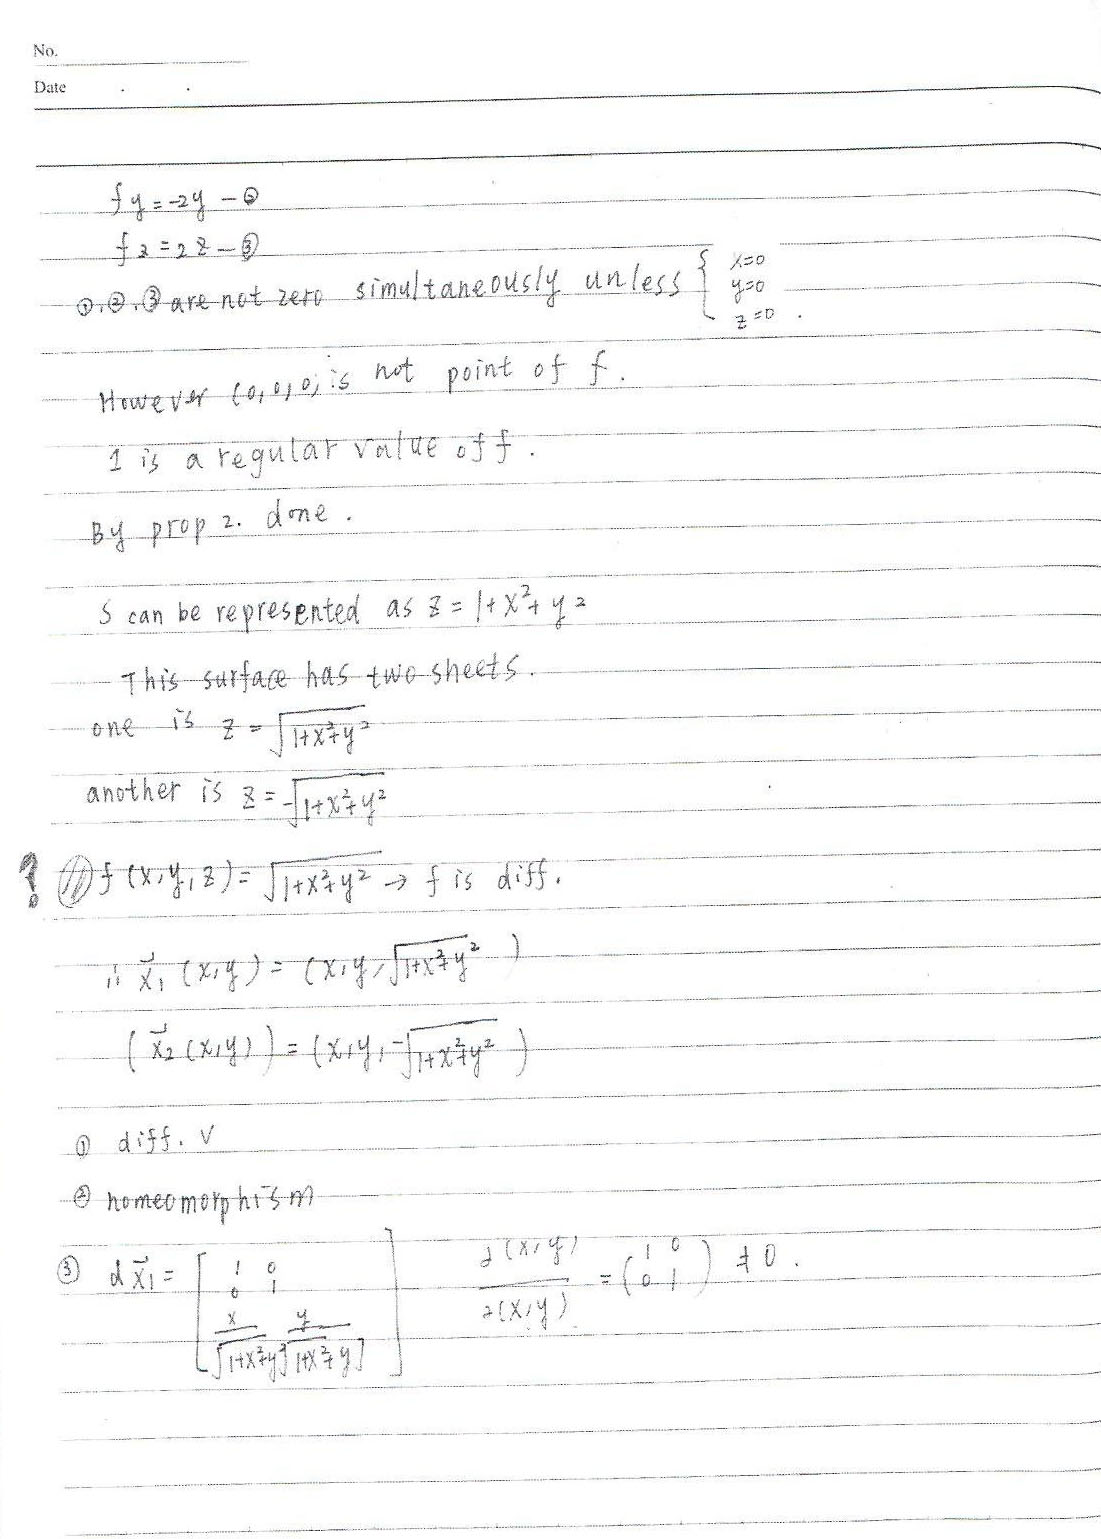 No.
Date . .
fy = -2y — ②
fz = 2z — ③
①.②.③ are not zero simultaneously unless { x=0 y=0 z=0 .
However (0,0,0) is not point of f.
1 is a regular value of f.
By prop 2. done.
S can be represented as z = 1+x²+y²
This surface has two sheets.
one is z = √1+x²+y²
another is z = -√1+x²+y²
? f(x,y,z) = √1+x²+y² → f is diff.
∴ x⃗₁(x,y) = (x,y,√1+x²+y²)
(x⃗₂(x,y)) = (x,y,-√1+x²+y²)
① diff. ∨
② homeomorphism
③ dx⃗₁ = [ 1 0 / 0 1 / x/√1+x²+y² y/√1+x²+y ] ∂(x,y)/∂(x,y) = (1 0 / 0 1) ≠ 0.